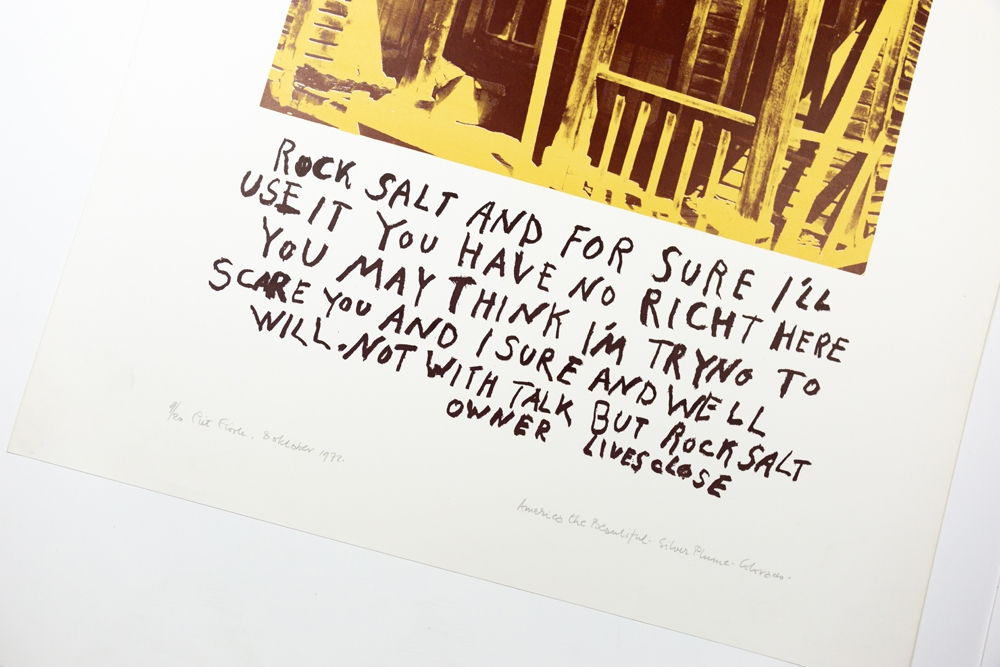 ROCK SALT AND FOR SURE I'LL
USE IT YOU HAVE NO RIGHT HERE
YOU MAY THINK I'M TRYNG TO
SCARE YOU AND I SURE AND WELL
WILL. NOT WITH TALK BUT ROCK SALT
OWNER LIVES CLOSE
October 1972.
America the Beautiful - Silver Plume - Colorado.